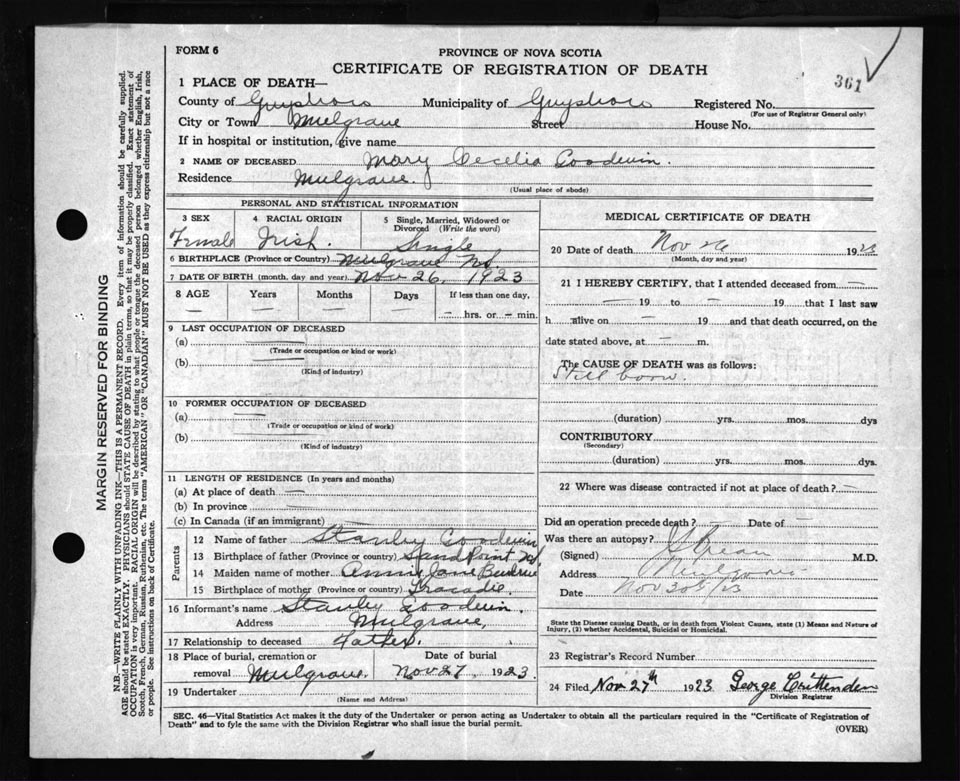 FORM 6
PROVINCE OF NOVA SCOTIA
CERTIFICATE OF REGISTRATION OF DEATH
361
1 PLACE OF DEATH—
County of Guysboro Municipality of Guysboro Registered No.
(For use of Registrar General only)
City or Town Mulgrave Street House No.
If in hospital or institution, give name
2 NAME OF DECEASED Mary Cecelia Goodwin.
Residence Mulgrave.
(Usual place of abode)
PERSONAL AND STATISTICAL INFORMATION
3 SEX
Female
4 RACIAL ORIGIN
Irish.
5 Single, Married, Widowed or Divorced (Write the word)
Single
6 BIRTHPLACE (Province or Country) Mulgrave NS
7 DATE OF BIRTH (month, day and year) Nov 26, 1923
8 AGE Years Months Days If less than one day,
— — — — — hrs. or — min.
9 LAST OCCUPATION OF DECEASED
(a) —
(Trade or occupation or kind or work)
(b) —
(Kind of industry)
10 FORMER OCCUPATION OF DECEASED
(a) —
(Trade or occupation or kind of work)
(b) —
(Kind of industry)
11 LENGTH OF RESIDENCE (In years and months)
(a) At place of death —
(b) In province —
(c) In Canada (if an immigrant) —
Parents
12 Name of father Stanley Goodwin
13 Birthplace of father (Province or country) Sand Point NS
14 Maiden name of mother Annie Jane
15 Birthplace of mother (Province or country) Tracadie.
16 Informant's name Stanley Goodwin.
Address Mulgrave,
17 Relationship to deceased Father.
18 Place of burial, cremation or removal Mulgrave Date of burial Nov 27, 1923
19 Undertaker
(Name and Address)
MEDICAL CERTIFICATE OF DEATH
20 Date of death Nov 26 1923
(Month, day and year)
21 I HEREBY CERTIFY, that I attended deceased from —
— 19 to — 19 that I last saw
h alive on — 19 and that death occurred, on the
date stated above, at — m.
The CAUSE OF DEATH was as follows:
Still born.
(duration) yrs. mos. dys
CONTRIBUTORY
(Secondary)
(duration) yrs. mos. dys.
22 Where was disease contracted if not at place of death? —
Did an operation precede death? — Date of —
Was there an autopsy?
(Signed) M.D.
Address Mulgrave
Date
State the Disease causing Death, or in death from Violent Causes, state (1) Means and Nature of
Injury, (2) whether Accidental, Suicidal or Homicidal.
23 Registrar's Record Number
24 Filed Nov 27th 1923 George Crittenden
Division Registrar
SEC. 46—Vital Statistics Act makes it the duty of the Undertaker or person acting as Undertaker to obtain all the particulars required in the "Certificate of Registration of
Death" and to fyle the same with the Division Registrar who shall issue the burial permit.
(OVER)
MARGIN RESERVED FOR BINDING
N.B.—WRITE PLAINLY WITH UNFADING INK—THIS IS A PERMANENT RECORD. Every item of information should be carefully supplied.
AGE should be stated EXACTLY. PHYSICIANS should STATE CAUSE OF DEATH in plain terms, so that it may be properly classified. Exact statement of
OCCUPATION is very important. RACIAL ORIGIN will be described by stating to what people or tongue the deceased person belonged whether English, Irish,
Scotch, French, German, Russian, Ruthenian, etc. The terms "AMERICAN" OR "CANADIAN" MUST NOT BE USED as they express citizenship but not a race
or people. See instructions on back of Certificate.